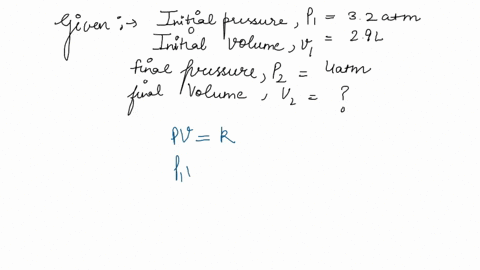 Given :→ Initial pressure, P₁ = 3.2 atm
Initial volume, V₁ = 2.9L
final pressure, P₂ = 4atm
final volume, V₂ = ?
PV = k
P₁